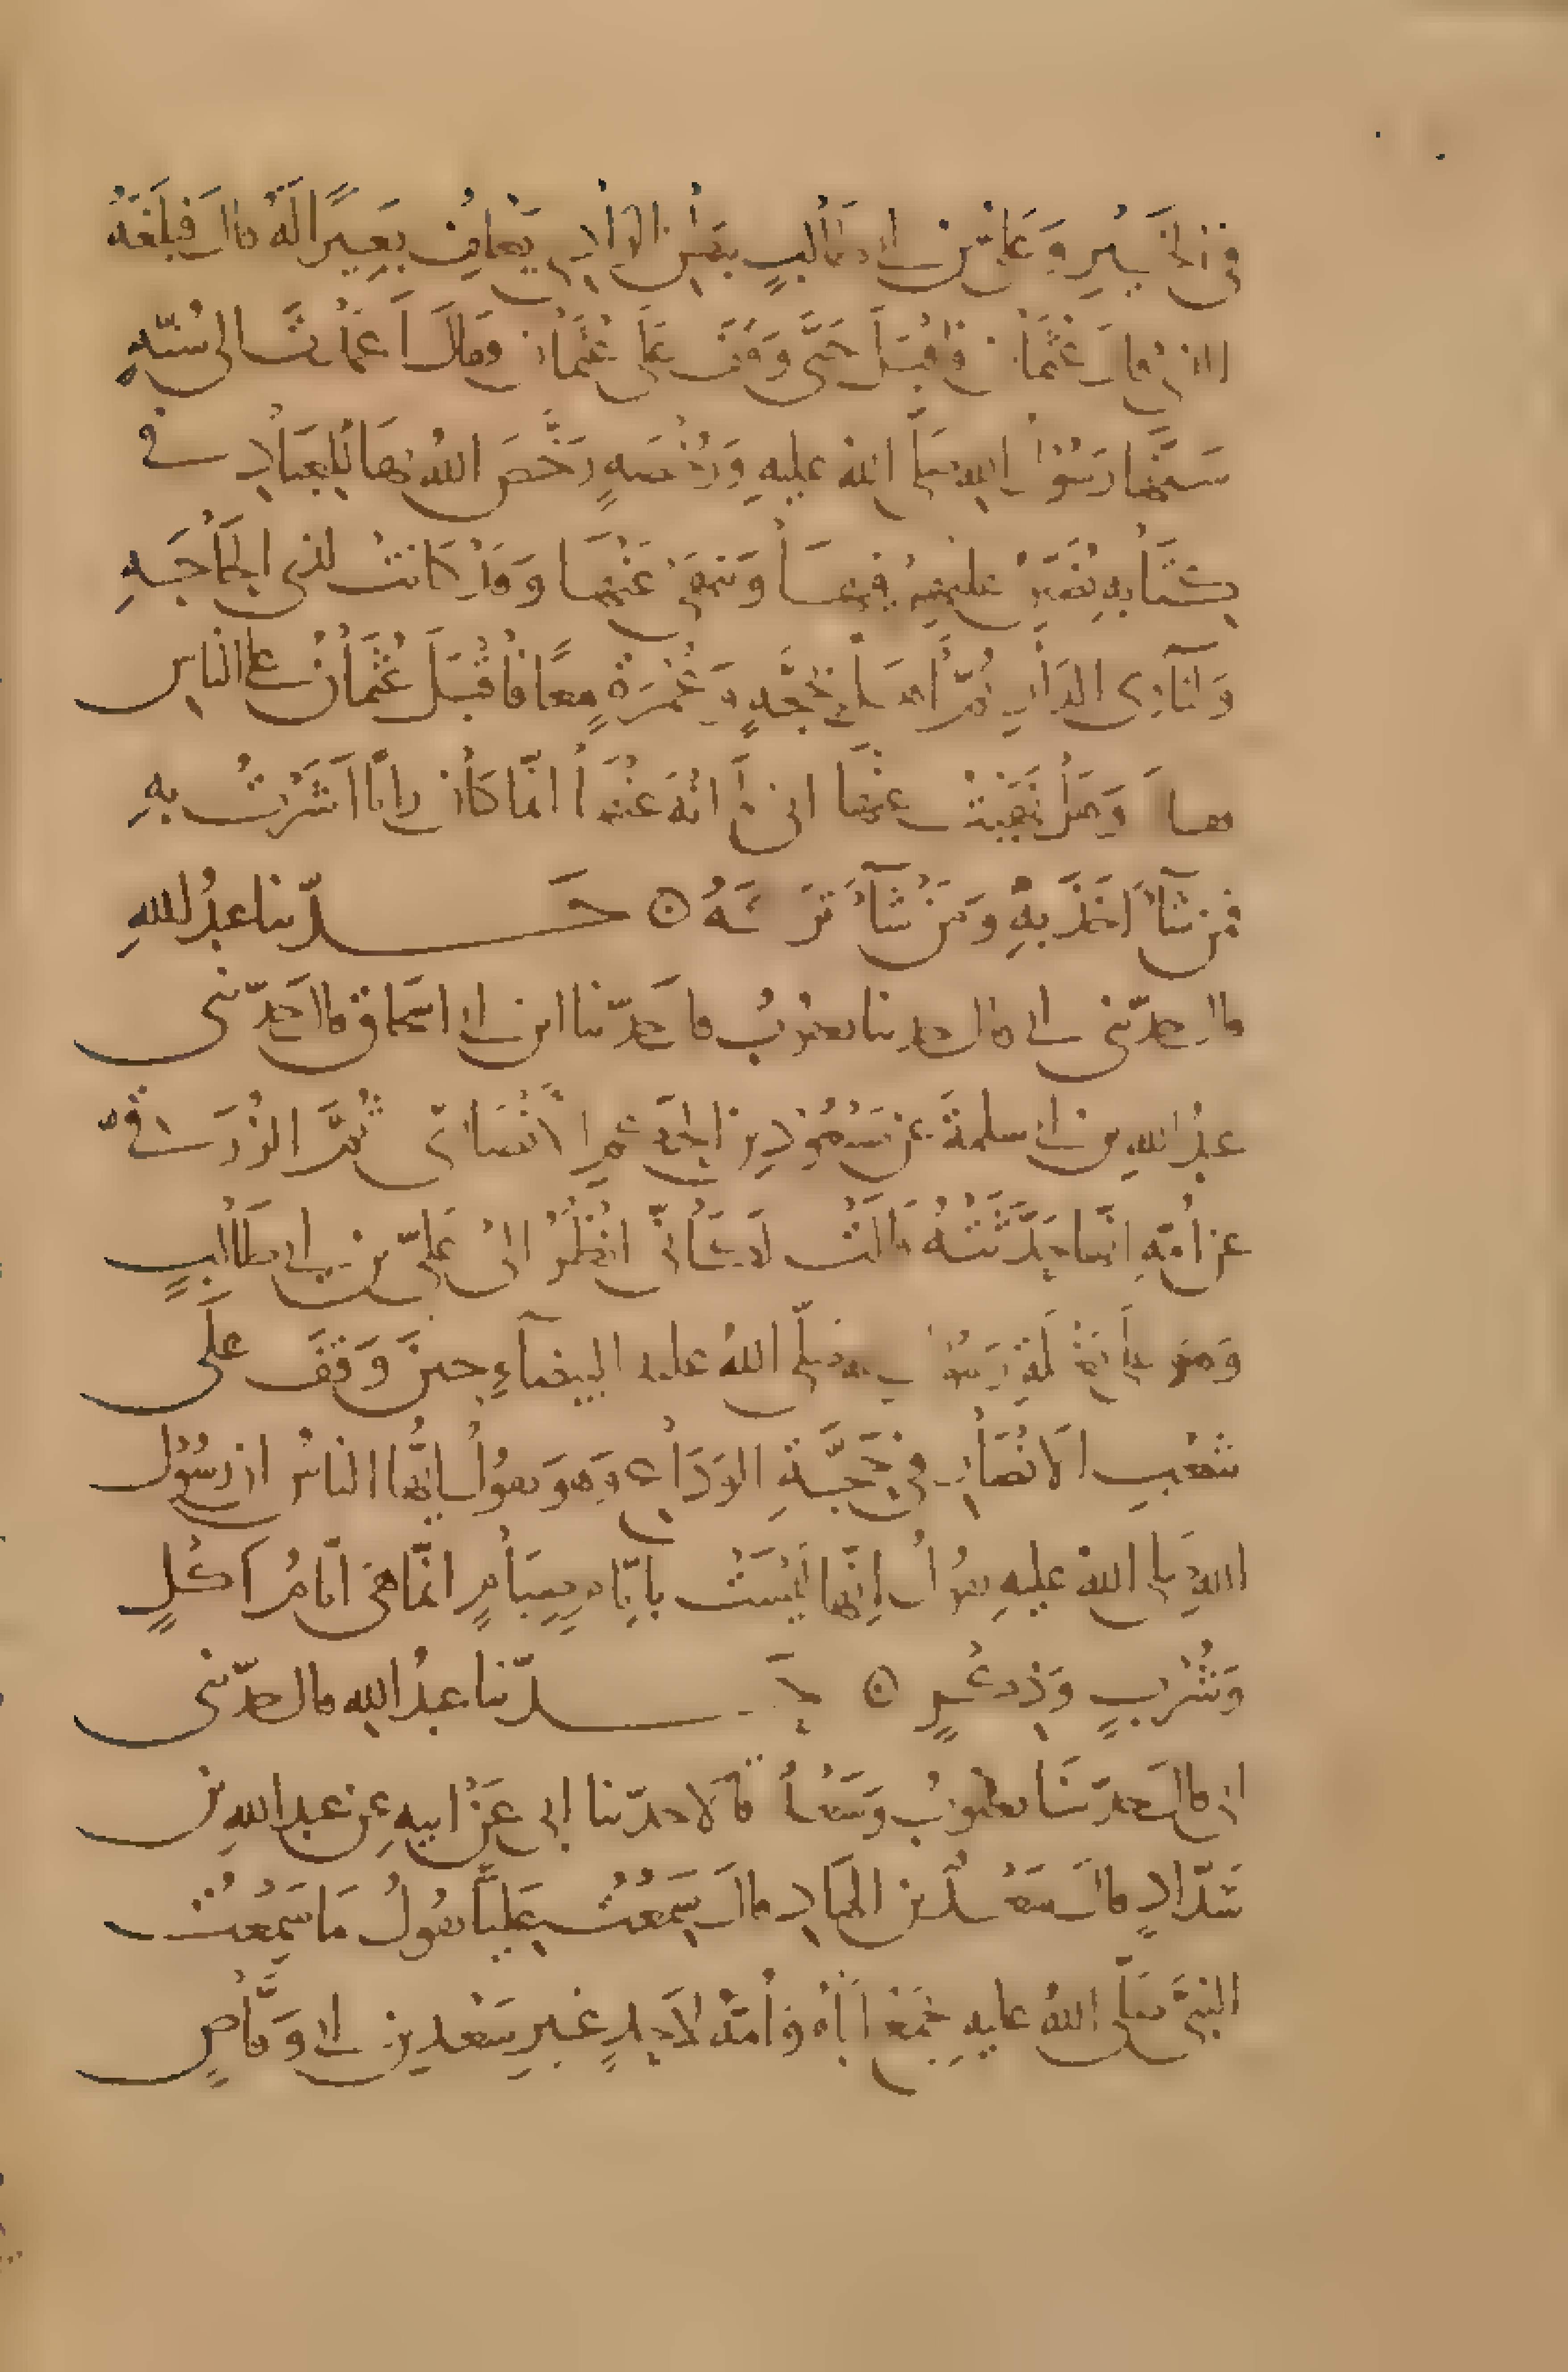 في الخير وَعليّ بن ابي طالبٍ ببطن الوادِي يَعلِفُ بَعِيرًا لَهُ قال فبلغَهُ
الذي قال عُثمانُ فاقبَلَ حَتّى وَقَفَ عَلى عُثمانَ فقالَ اَعَمَدْتَ الى سُنّةٍ
سَنّها رَسُولُ اللهِ صلى الله عليهِ وَرُخْصَةٍ رَخّصَ اللهُ بها للعِبَادِ في
كِتَابِهِ تُضَيِّقُ عليهِمْ فيها وَتَنهَى عَنْها وَقَدْ كَانَتْ لذي الحَاجَةِ
وَلنَائي الدَارِ ثُمّ اَهَلّ بحَجّةٍ وَعُمْرَةٍ معًا فاَقْبَلَ عُثمَانُ على الناسِ
فقالَ وَهَلْ نَهَيْتُ عنها اني لَمْ اَنْهَ عَنْهَا انّما كَانَ رايًا اَشَرْتُ بهِ
فمن شَآءَ اَخَذَ بهِ وَمَنْ شَآءَ تَرَكَهُ ۞ حَـدّثنا عبدُ اللهِ
قال حدّثني ابي قال حدثنا يعقوبُ قال حَدّثنا ابن ابي اسحاق قال حَدّثني
عبدُ اللهِ بن ابي سلمةَ عن مَسْعُودِ بن الحَكمِ الاَنْصَارِي ثُمّ الزُرَقي
عن اُمّهِ انّها حَدّثَتْهُ قَالَتْ لَكَاَنّي اَنْظُرُ الىٰ عَليّ بن ابي طالبٍ
وَهوَ على بَغْلَةِ رَسُولِ اللهِ صَلّى اللهُ عليه البيضآءِ حينَ وَقَفَ عَلَى
شِعْبِ الاَنْصَارِ في حَجّةِ الوَدَاعِ وَهوَ يقولُ يا ايُّها الناسُ ان رسُول
اللهِ صلى الله عليهِ يقولُ اِنّها لَيْسَتْ بايّامِ صِيَامٍ انّما هي ايّامُ اَكْلٍ
وَشُرْبٍ وَذِكْرٍ ۞ حَـدّثنا عبدُ اللهِ قال حدّثني
ابي قال حَدّثنَا يعقوبُ وَسَعْدٌ قالا حدّثنا ابي عَنْ ابيهِ عن عبد اللهِ بن
شَدّادٍ قال سَعْدُ بن الهَادِ قال سَمِعْتُ عَليًّا يقُولُ مَا سَمِعْتُ
النبيَّ صَلّى اللهُ عليهِ يَجْمَعُ اَبَاهُ وَاُمّهُ لاَحدٍ غيرِ سَعْدِ بن ابي وَقّاصٍ